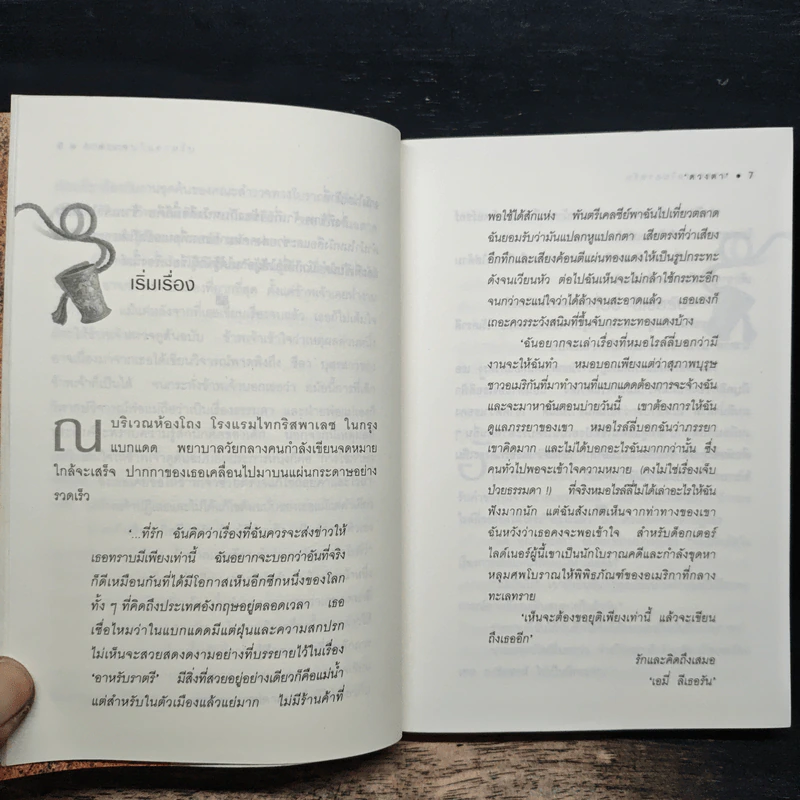 เริ่มเรื่อง
ณ บริเวณห้องโถง โรงแรมไทกริสพาเลซ ในกรุง
แบกแดด พยาบาลวัยกลางคนกำลังเขียนจดหมาย
ใกล้จะเสร็จ ปากกาของเธอเคลื่อนไปมาบนแผ่นกระดาษอย่าง
รวดเร็ว
'...ที่รัก ฉันคิดว่าเรื่องที่ฉันควรจะส่งข่าวให้
เธอทราบมีเพียงเท่านี้ ฉันอยากจะบอกว่าอันที่จริง
ก็ดีเหมือนกันที่ได้มีโอกาสเห็นอีกซีกหนึ่งของโลก
ทั้ง ๆ ที่คิดถึงประเทศอังกฤษอยู่ตลอดเวลา เธอ
เชื่อไหมว่าในแบกแดดมีแต่ฝุ่นและความสกปรก
ไม่เห็นจะสวยสดงดงามอย่างที่บรรยายไว้ในเรื่อง
'อาหรับราตรี' มีสิ่งที่สวยอยู่อย่างเดียวก็คือแม่น้ำ
แต่สำหรับในตัวเมืองแล้วแย่มาก ไม่มีร้านค้าที่
"ดวงตา" • 7
พอใช้ได้สักแห่ง พันตรีเคลซีย์พาฉันไปเที่ยวตลาด
ฉันยอมรับว่ามันแปลกหูแปลกตา เสียตรงที่ว่าเสียง
อึกทึกและเสียงค้อนตีแผ่นทองแดงให้เป็นรูปกระทะ
ดังจนเวียนหัว ต่อไปฉันเห็นจะไม่กล้าใช้กระทะอีก
จนกว่าจะแน่ใจว่าได้ล้างจนสะอาดแล้ว เธอเองก็
เถอะควรระวังสนิมที่ขึ้นจับกระทะทองแดงบ้าง
'ฉันอยากจะเล่าเรื่องที่หมอไรล์ลี่บอกว่ามี
งานจะให้ฉันทำ หมอบอกเพียงแต่ว่าสุภาพบุรุษ
ชาวอเมริกันที่มาทำงานที่แบกแดดต้องการจะจ้างฉัน
และจะมาหาฉันตอนบ่ายวันนี้ เขาต้องการให้ฉัน
ดูแลภรรยาของเขา หมอไรล์ลี่บอกฉันว่าภรรยา
เขาคิดมาก และไม่ได้บอกอะไรฉันมากกว่านั้น ซึ่ง
คนทั่วไปพอจะเข้าใจความหมาย (คงไม่ใช่เรื่องเจ็บ
ป่วยธรรมดา !) ที่จริงหมอไรล์ลี่ไม่ได้เล่าอะไรให้ฉัน
ฟังมากนัก แต่ฉันสังเกตเห็นจากท่าทางของเขา
ฉันหวังว่าเธอคงจะพอเข้าใจ สำหรับด็อกเตอร์
ไลด์เนอร์ผู้นี้เขาเป็นนักโบราณคดีและกำลังขุดหา
หลุมศพโบราณให้พิพิธภัณฑ์ของอเมริกาที่กลาง
ทะเลทราย
'เห็นจะต้องขอยุติเพียงเท่านี้ แล้วจะเขียน
ถึงเธออีก'
รักและคิดถึงเสมอ
'เอมี่ ลีเธอรัน'